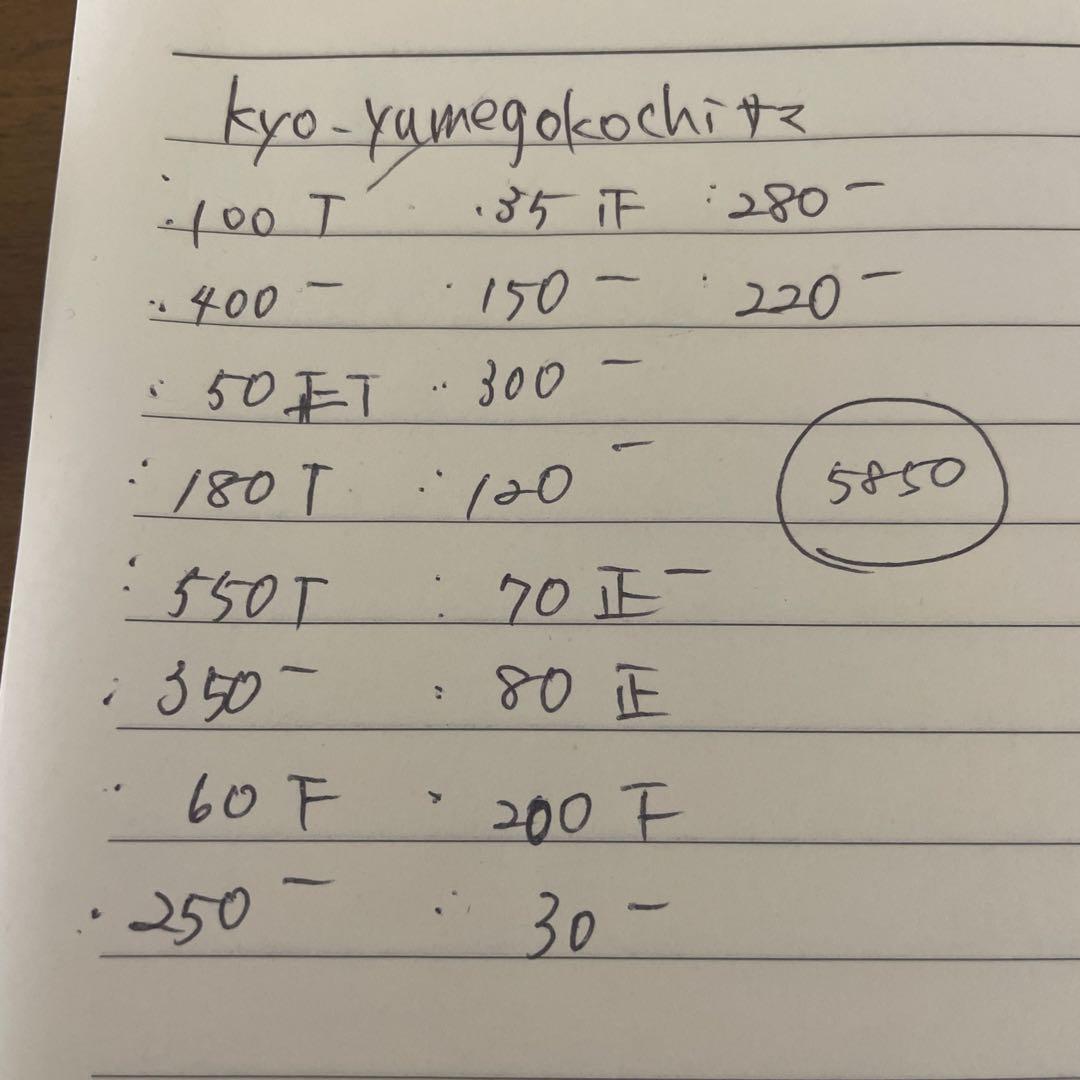 kyo-yumegokochiサマ
・100 T ・35 正 ・280 一
・400 一 ・150 一 ・220 一
・50 正T ・300 一
・180 T ・120 一
・550 T ・70 正一
・350 一 ・80 正
・60 下 ・200 下
・250 一 ・30 一
5850